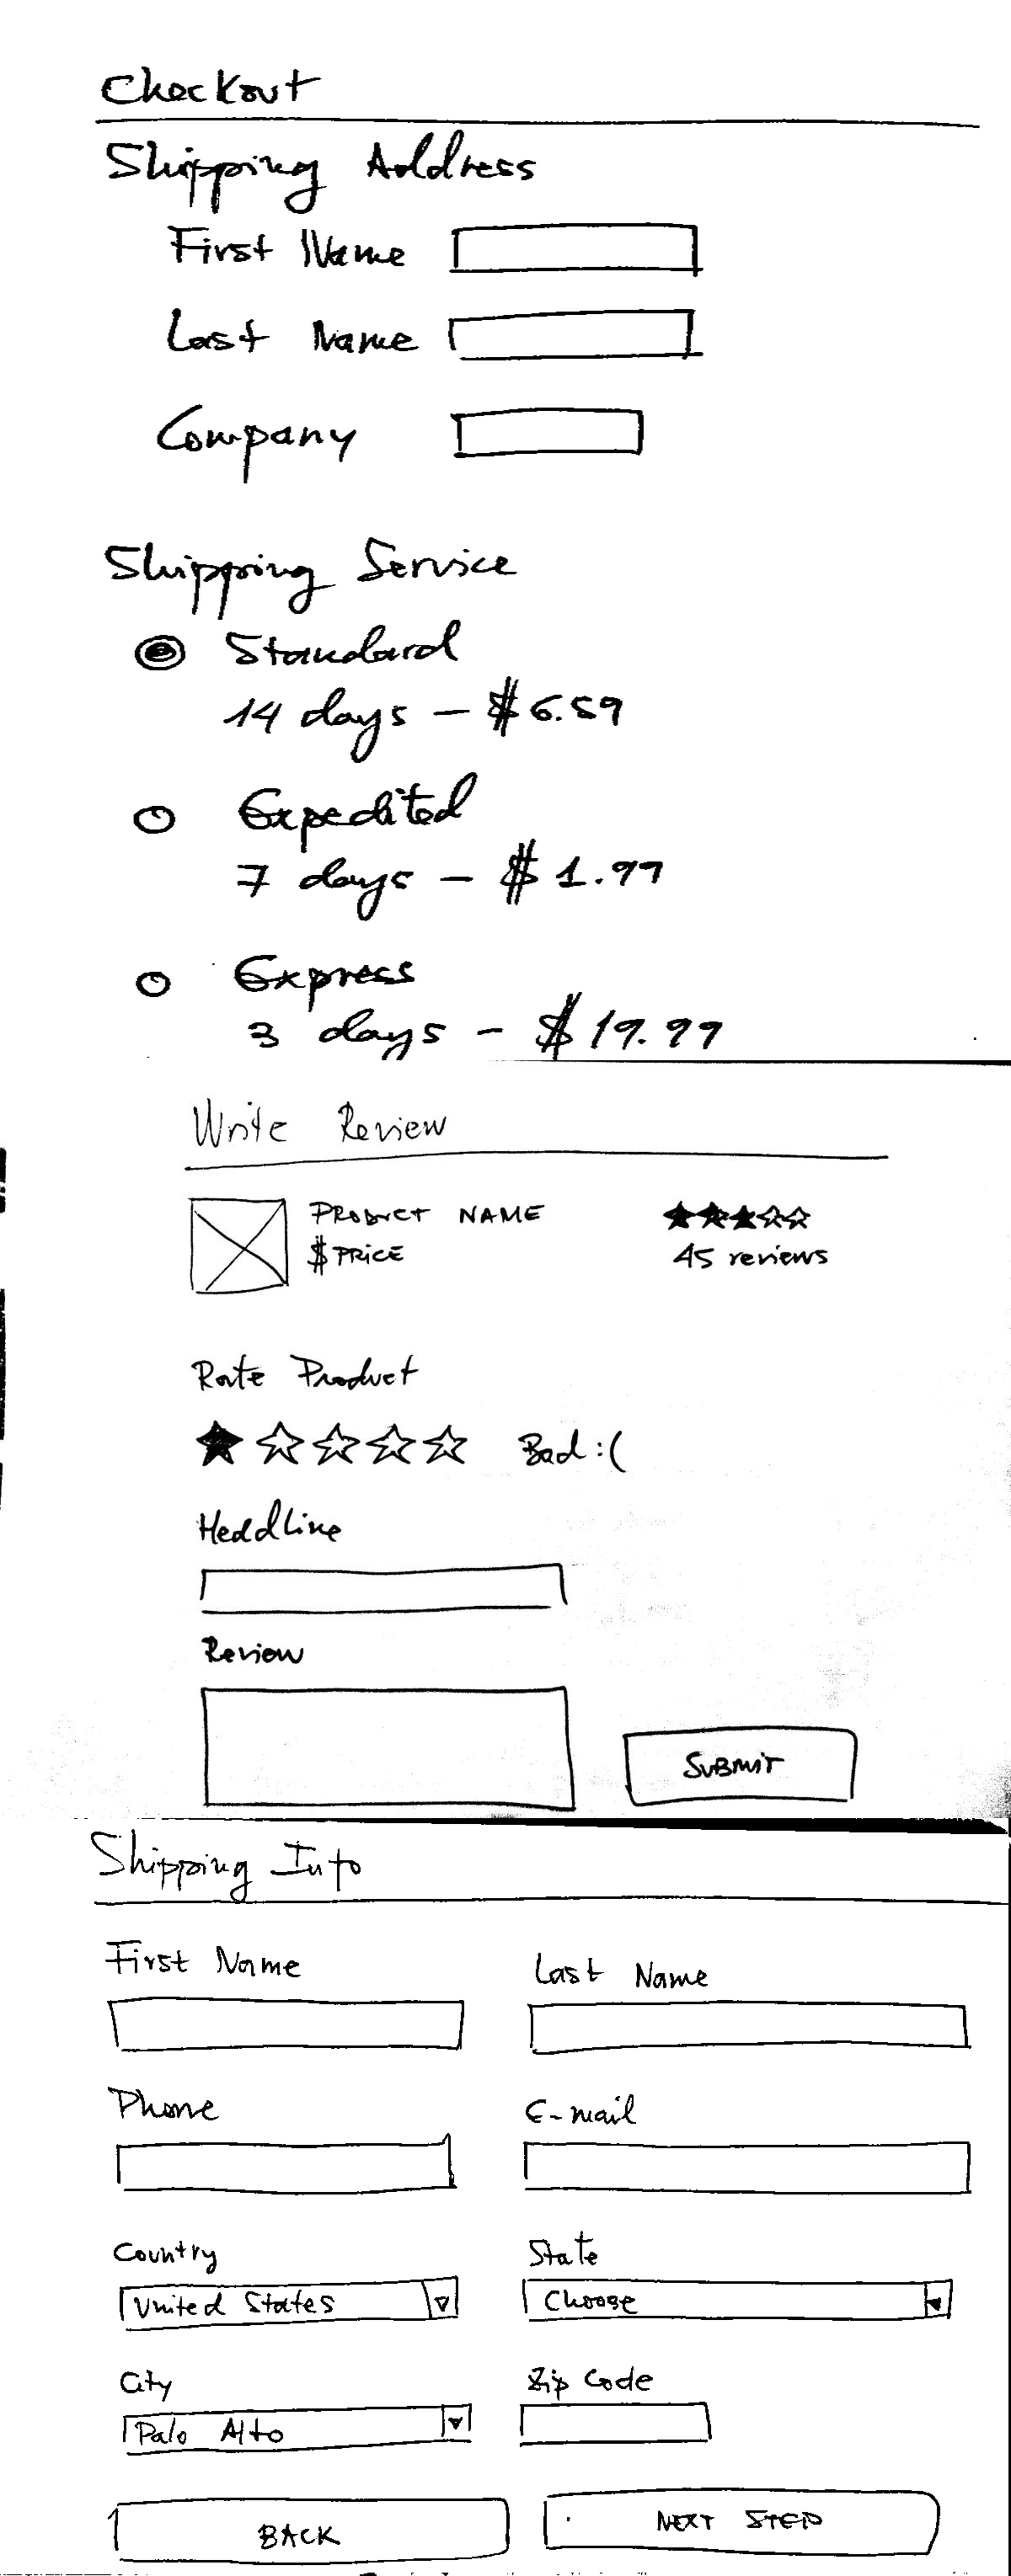 Checkout
Shipping Address
First Name
Last Name
Company
Shipping Service
Standard
14 days - $6.59
Expedited
7 days - $1.99
Express
3 days - $19.99
Write Review
PRODUCT NAME
$ PRICE
45 reviews
Rate Product
Bad :(
Headline
Review
SUBMIT
Shipping Info
First Name Last Name
Phone E-mail
Country State
United States Choose
City Zip Code
Palo Alto
BACK NEXT STEP